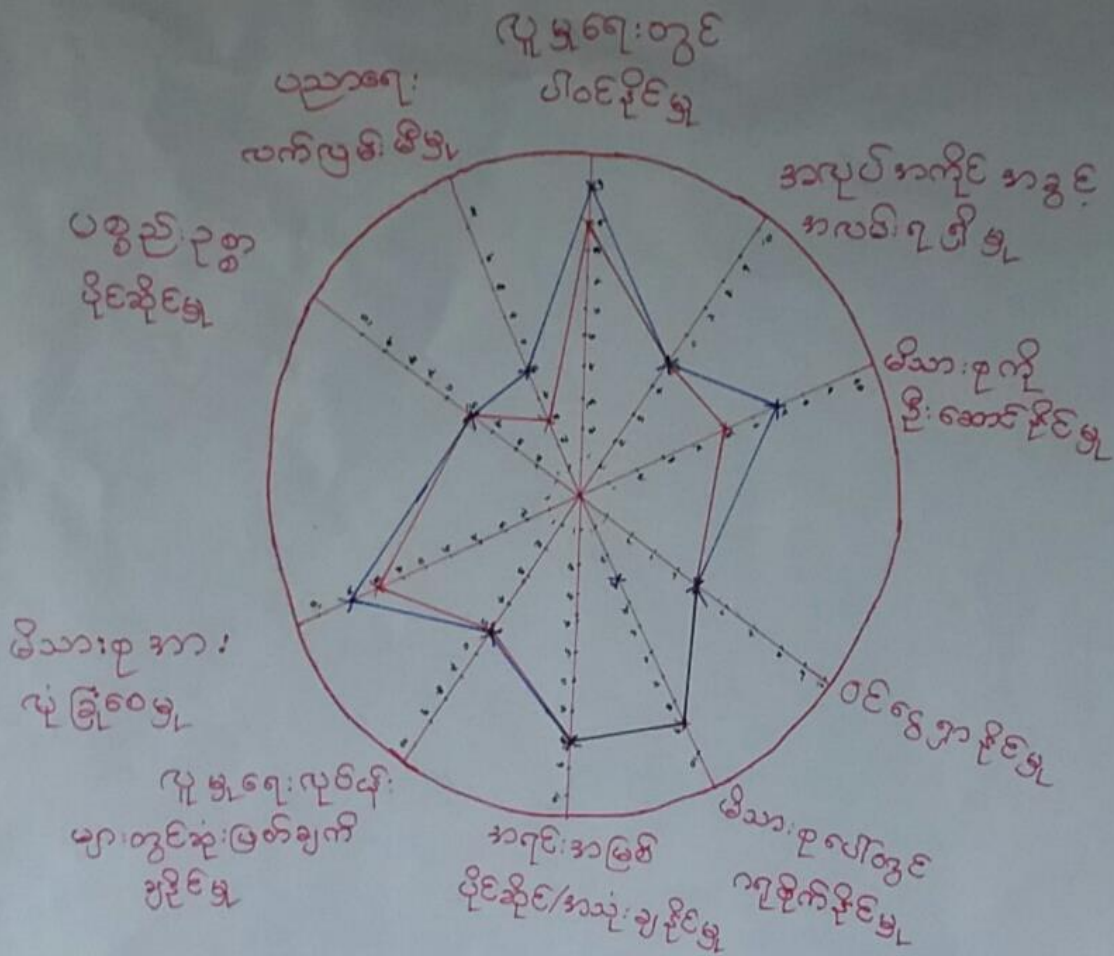 လူမှုရေးတွင်
ပါဝင်နိုင်မှု
အလုပ်အကိုင် အခွင့်
အလမ်းရရှိမှု
မိသားစုကို
ဦးဆောင်နိုင်မှု
ဝင်ငွေရှာနိုင်မှု
မိသားစုပေါ်တွင်
ဂရုစိုက်နိုင်မှု
အရင်းအမြစ်
ပိုင်ဆိုင်/အသုံးချနိုင်မှု
လူမှုရေးလုပ်ငန်း
များတွင်ဆုံးဖြတ်ချက်
ချနိုင်မှု
မိသားစုအား
လုံခြုံစေမှု
ပစ္စည်းဥစ္စာ
ပိုင်ဆိုင်မှု
ပညာရေး
လက်လှမ်းမီမှု